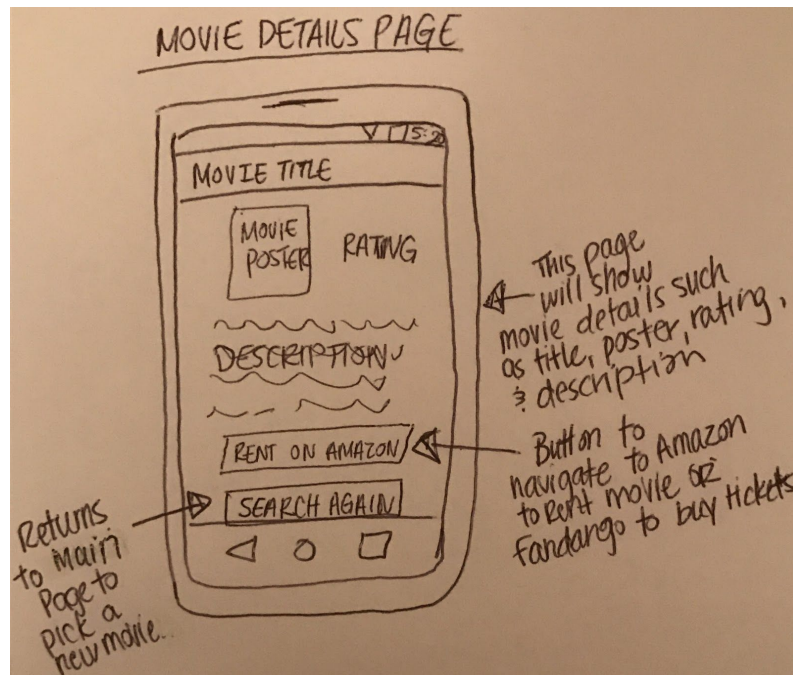 MOVIE DETAILS PAGE
5:20
MOVIE TITLE
MOVIE
POSTER
RATING
DESCRIPTION
RENT ON AMAZON
SEARCH AGAIN
This page
will show
movie details such
as title, poster, rating,
& description
Button to
navigate to Amazon
to Rent movie OR
Fandango to buy tickets
Returns
to Main
Page to
pick a
new movie.